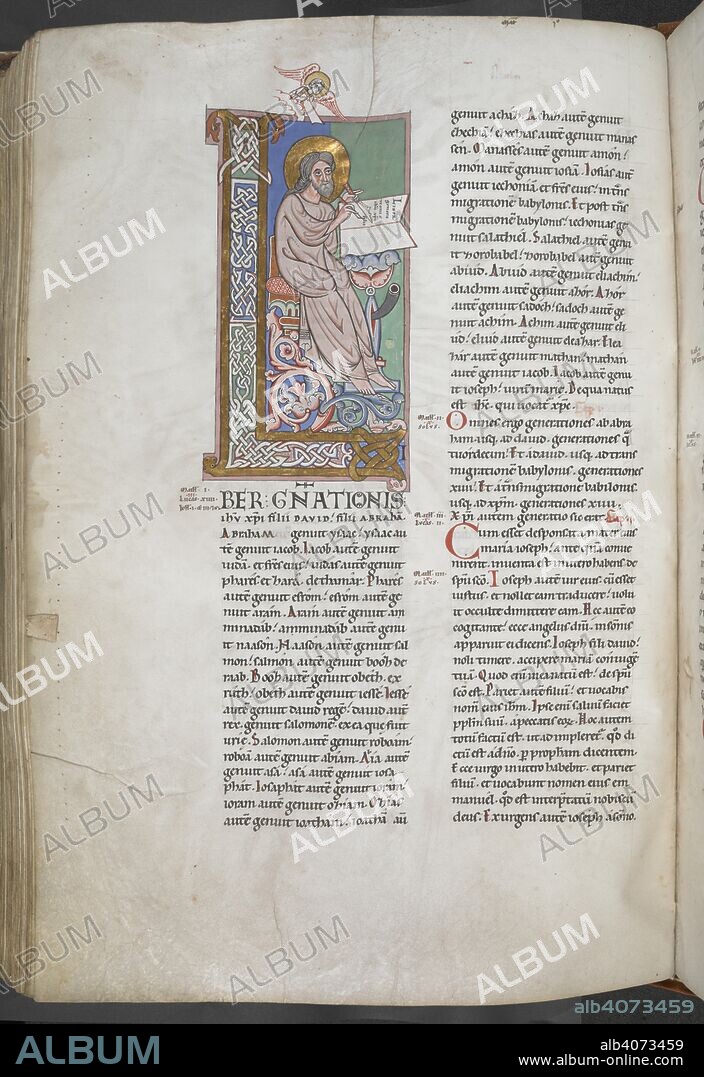 BER · GNATIONIS
ihu xpi filii DAVID! filii ABRAHA
ABRAHAM genuit ysaac! ysaac au
tē genuit iacob. Iacob autē genuit
iudā · et frēs eius! iudas autē genuit
pharēs et harā · dethamar! Pharēs
autē genuit esrom! esrom autē ge
nuit aram. Aram autē genuit am
minadab! aminadab autē genu
it naason. Naason autē genuit sal
mon! salmon autē genuit booh de
rab. Booh autē genuit obeth · ex
ruth! obeth autē genuit iesse. Iesse
autē genuit david regē! david autē
rex · genuit salomonē · ex ea que fuit
urie. Salomon autē genuit roboam!
roboā autē genuit abiam. Abia autē
genuit asa! asa autē genuit iosa
phat. Iosaphat autē genuit ioram!
ioram autē genuit ohiam. Ohias
autē genuit ioathan! ioathā au
genuit achaz. Achaz autē genuit
ehechiā! ehechias autē genuit manas
sen. Manasses autē genuit amon!
amon autē genuit iosiā. Iosias autē
genuit iechoniā et frēs eius! intns
migratione babylonis. Et post tns
migrationē babylonis! iechonias ge
nuit salathiel. Salathiel autē genu
it horobabel! horobabel autē genuit
abiud. Abiud autē genuit eliachim!
eliachim autē genuit ahor. Ahor
autē genuit sadoch! sadoch autē ge
nuit achim. Achim autē genuit eli
ud! eliud autē genuit eleahar. Elea
har autē genuit mathan! mathan
autē genuit iacob. Iacob autē genu
it ioseph! virum marie. De qua natus
est ihc · qui vocat xpc.
Omnes ergo generationes ab abra
ham usq; ad david · generationes q
tuordecim! Et a david · usq; ad trans
migrationē babylonis · generationes
xiiii! Et a tnsmigratione babylonis ·
usq; ad xpm · generationes xiiii.
Xpi autem generatio sic erat.
Cum esset desponsata mater eius
maria ioseph! ante quā conve
nirent · inventa est in utero habens de
spu sco. Ioseph autē vir eius cū esset
iustus · et nollet eam traducere! volu
it occulte dimittere eam. Hec autē eo
cogitante! ecce angelus dni · in somnis
apparuit ei dicens. Ioseph fili david!
noli timere · accipere mariā coniugē
tuā. Quod enī in ea natū est! de spu
sco est. Pariet autē filiū! et vocabis
nomē eius ihm. Ipse enī salvū faciet
pplm suū · a peccatis eorz. Hoc autem
totū factū est · ut adimpleret · qd di
ctū est a dno · per prophetam dicentem.
Ecce virgo in utero habebit · et pariet
filiū! et vocabunt nomen eius em
manuel · qd est interptatū nobiscū
deus. Exurgens autē ioseph a sōno ·
ALBUM
alb4073459
ALBUM
alb4073459
www.album-online.com